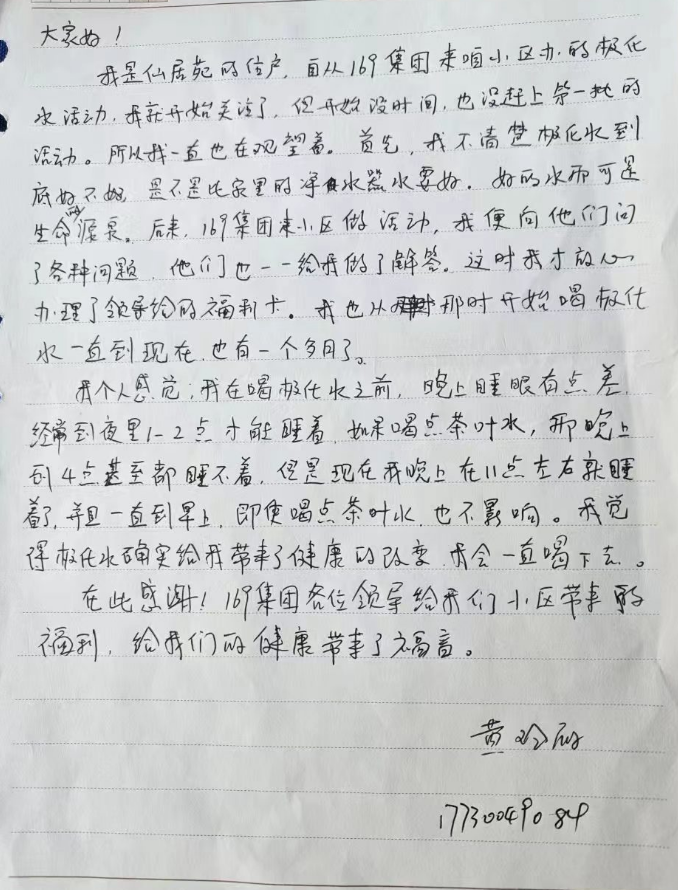 大家好！
我是仙居苑的住户，自从169集团来咱小区办的极化
水活动，我就开始关注了，但开始没时间，也没赶上第一批的
活动。所以我一直也在观望着。首先，我不清楚极化水到
底好不好，是不是比家里的净水器水要好。好的水那可是
生命的源泉。后来，169集团来小区做活动，我便向他们问
了各种问题，他们也一一给我做了解答。这时我才放心
办理了领导给的福利卡。我也从那时开始喝极化
水一直到现在，也有一个多月了。
我个人感觉：我在喝极化水之前，晚上睡眠有点差，
经常到夜里1-2点才能睡着，如果喝点茶叶水，那晚上
到4点甚至都睡不着，但是现在我晚上在11点左右就睡
着了，并且一直到早上，即使喝点茶叶水，也不影响。我觉
得极化水确实给我带来了健康的改变，我会一直喝下去。
在此感谢！169集团各位领导给我们小区带来的
福利，给我们的健康带来了福音。
黄
17730049084